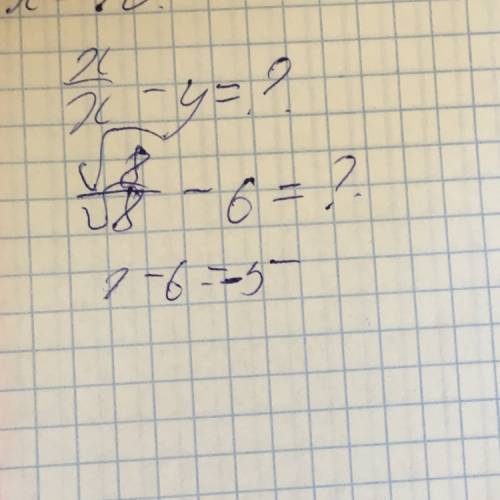 x/x - y = ?
√8/√8 - 6 = ?
1 - 6 = -5